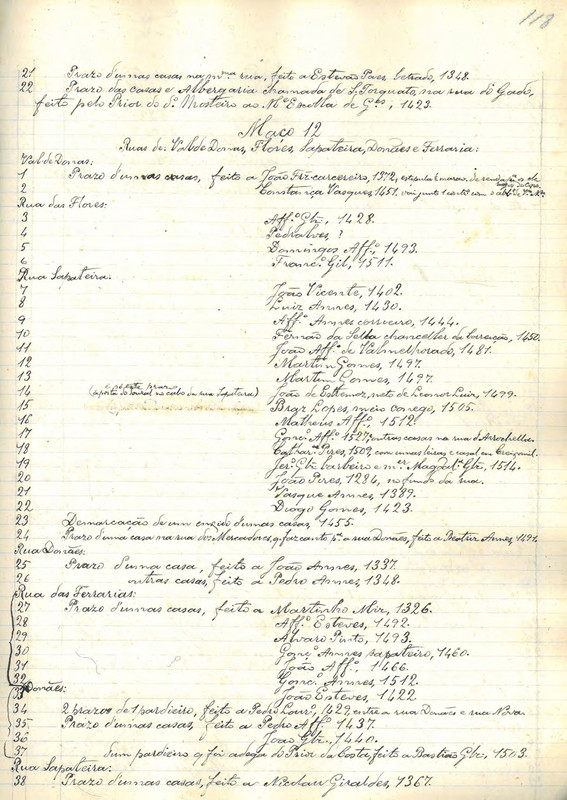 118
21 Prazo d'umas casas na m.ma rua, feito a Estevão Paes, letrado, 1348.
22 Prazo das casas e Albergaria chamada de S. Torquato, na rua do Gado,
feito pelo Prior do d.o Mostro ao M.e Escolla de G.es, 1423.
Maço 12
Ruas de: Val de Donas, Flores, Sapateira, Donães e Ferraria:
Val de Donas:
1 Prazo d'umas casas, feito a João Frz carcereiro, 1372,
2 Constança Vasques 1451.
Rua das Flores:
3 Aff.o Glz, 1428.
4 Pedralves ?
5 Domingos Aff.o, 1493.
6 Franc.o Gil, 1511.
Rua Sapateira:
7 João Vicente, 1402.
8 Luiz Annes, 1430.
9 Aff.o Annes correeiro, 1444.
10 Fernão da chanceller da Correição, 1450.
11 João Aff.o de Valmelhorado, 1481.
12 Martim Gomes, 1497.
13 Martim Gomes, 1497.
14 (a porta do no cabo da rua Sapateira) João de Estremoz, neto de Leonor Luiz, 1499.
15 Braz Lopes, meio conego, 1505.
16 Matheus Aff.o, 1512.
17 Gonç.o Aff.o 1527, outras casas na rua d'Arrochella.
18 Cathar.na Pires, 1509, com umas leiras e casal em Creixomil.
19 Jer.o Glz barbeiro e m.er Magdal.a Glz, 1514.
20 João Pires, 1284, no fundo da rua.
21 Vasque Annes, 1389.
22 Diogo Gomes, 1423.
23 Demarcação de um enxido d'umas casas, 1455.
24 Prazo d'uma casa na rua dos Mercadores, q faz canto p.a a rua Donães, feito a Beatriz Annes, 1491.
Rua Donães:
25 Prazo d'uma casa, feito a João Annes, 1337.
26 outras casas, feito a Pedro Annes, 1348.
Rua das Ferrarias:
27 Prazo d'umas casas, feito a Martinho Miz, 1326.
28 Aff.o Esteves, 1492.
29 Alvaro Pinto, 1493.
30 Gonç.o Annes sapateiro, 1460.
31 João Aff.o, 1466.
32 Gonç.o Annes, 1512.
33 João Esteves, 1422.
Donães:
34 2 prazos de 1 pardieiro, feito a Pedro Lour.o, 1429, entre a rua Donães e rua Nova.
35 Prazo d'umas casas, feito a Pedro Aff.o 1437.
36 João Glz, 1440.
37 d'um pardieiro q foi adega do Prior da Costa, feito a Bastião Glz, 1503.
Rua Sapateira:
38 Prazo d'umas casas, feito a Nicolau Giraldes, 1367.